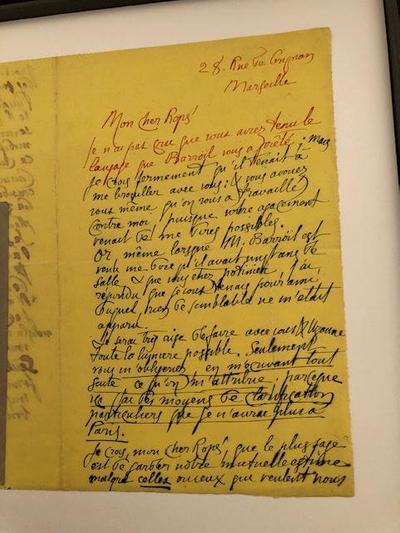 28. Rue de
Marseille
Mon Cher Rops!
je n'ai pas cru que vous aviez tenu le
langage que Barroil vous a prêté; mais
je crois fermement qu'il tenait à
me brouiller avec vous; & vous avouez
vous même qu'on vous a travaillé
contre moi, puisque votre agacement
venait de me
Or même lorsque M. Barroil est
venu me dire qu'il avait
salle & que vous chez j'ai
répondu que je vous tenais pour ami,
& que rien de semblable ne m'était
apparu.
Je serai très aise de faire avec vous
toute la lumière possible. Seulement
vous m'obligerez en m'écrivant tout
ce qu'on m'attribue, parceque
ici j'ai des moyens de clarification
particuliers que je n'aurai plus à
Paris.
Je crois, mon cher Rops! que le plus sage
est de garder notre mutuelle estime
malgré celles ou ceux qui veulent nous